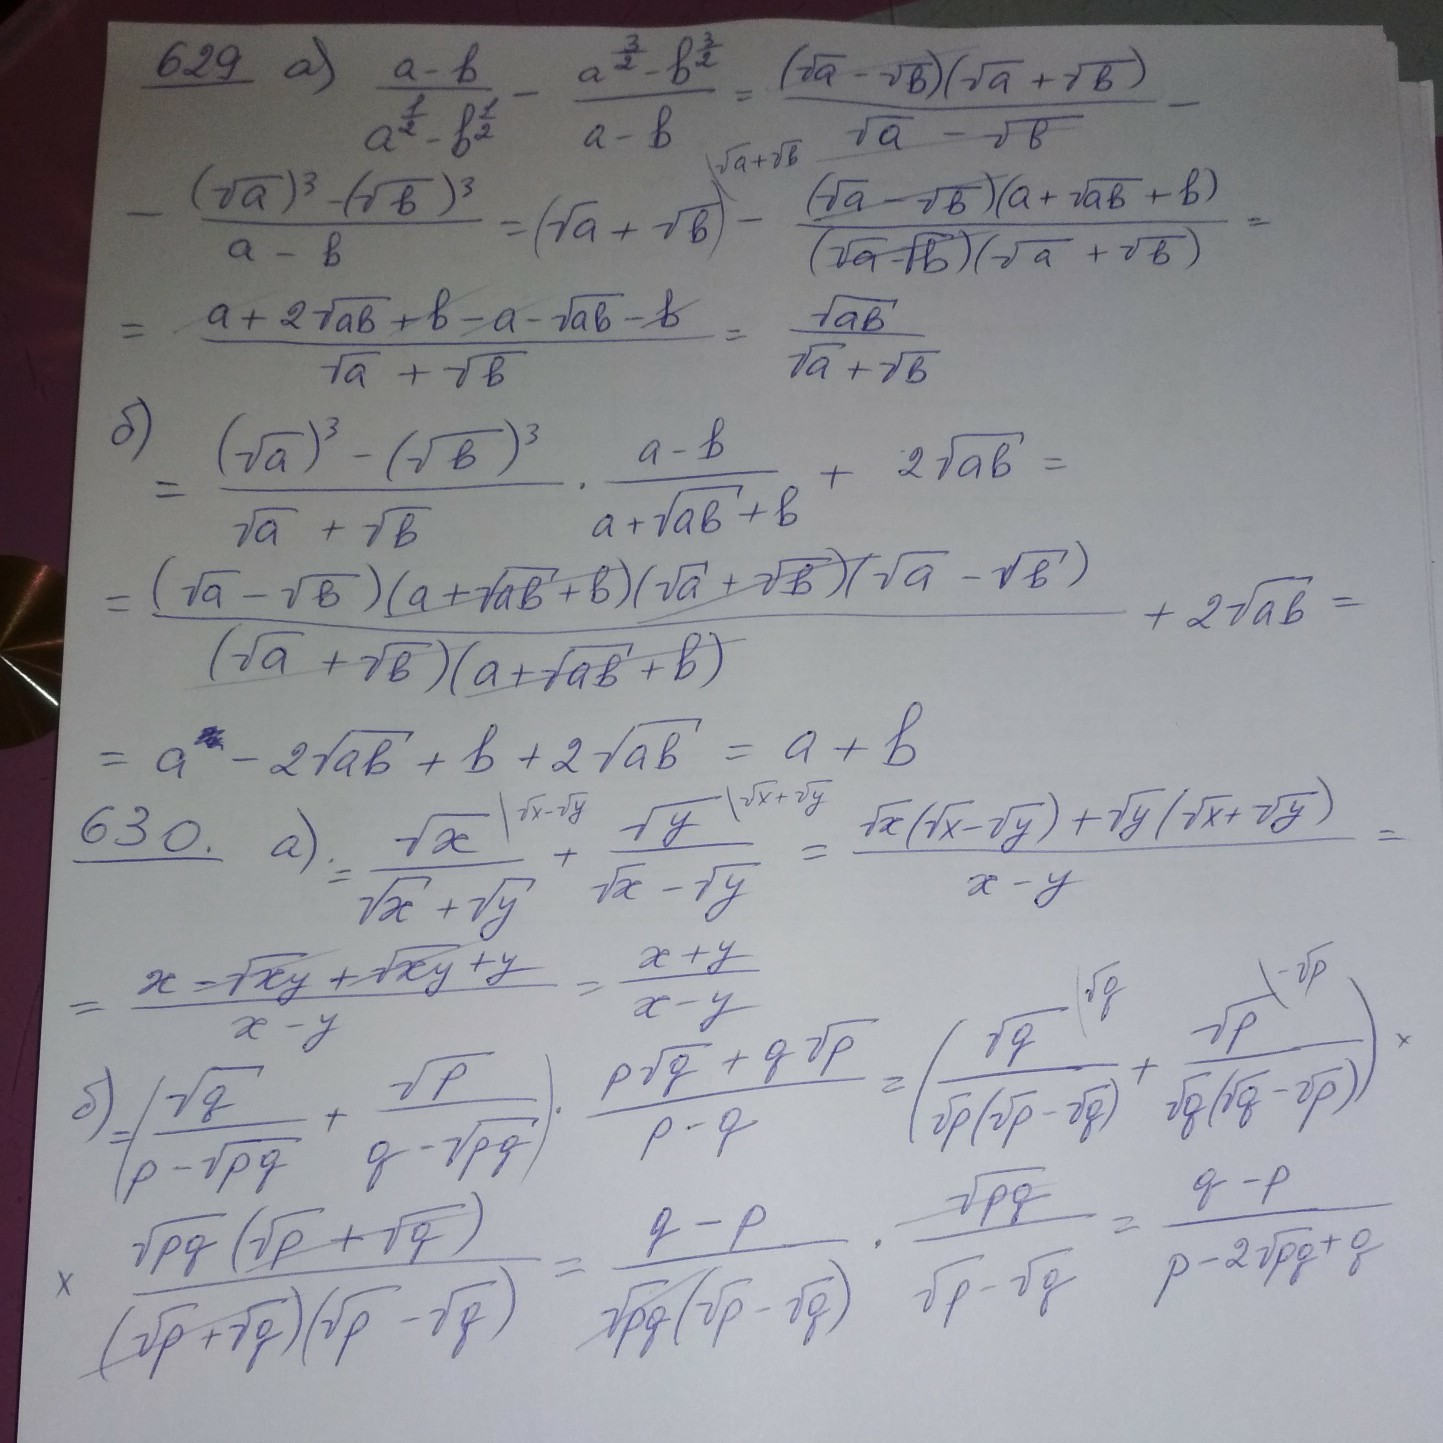 629 а) (a - b)/(a^(1/2) - b^(1/2)) - (a^(3/2) - b^(3/2))/(a - b) = ((√a - √b)(√a + √b))/(√a - √b) -
- ((√a)³ - (√b)³)/(a - b) = (√a + √b)\√a+√b - ((√a - √b)(a + √ab + b))/((√a - √b)(√a + √b)) =
= (a + 2√ab + b - a - √ab - b)/(√a + √b) = √ab/(√a + √b)
б) = ((√a)³ - (√b)³)/(√a + √b) · (a - b)/(a + √ab + b) + 2√ab =
= ((√a - √b)(a + √ab + b)(√a + √b)(√a - √b))/((√a + √b)(a + √ab + b)) + 2√ab =
= a - 2√ab + b + 2√ab = a + b
630. а). = √x\√x-√y/(√x + √y) + √y\√x+√y/(√x - √y) = (√x(√x - √y) + √y(√x + √y))/(x - y) =
= (x - √xy + √xy + y)/(x - y) = (x + y)/(x - y)
б) = (√q/(p - √pq) + √p/(q - √pq)) · (p√q + q√p)/(p - q) = (√q\√q/(√p(√p - √q)) + √p\-√p/(√q(√q - √p))) ×
× (√pq(√p + √q))/((√p + √q)(√p - √q)) = (q - p)/(√pq(√p - √q)) · √pq/(√p - √q) = (q - p)/(p - 2√pq + q)